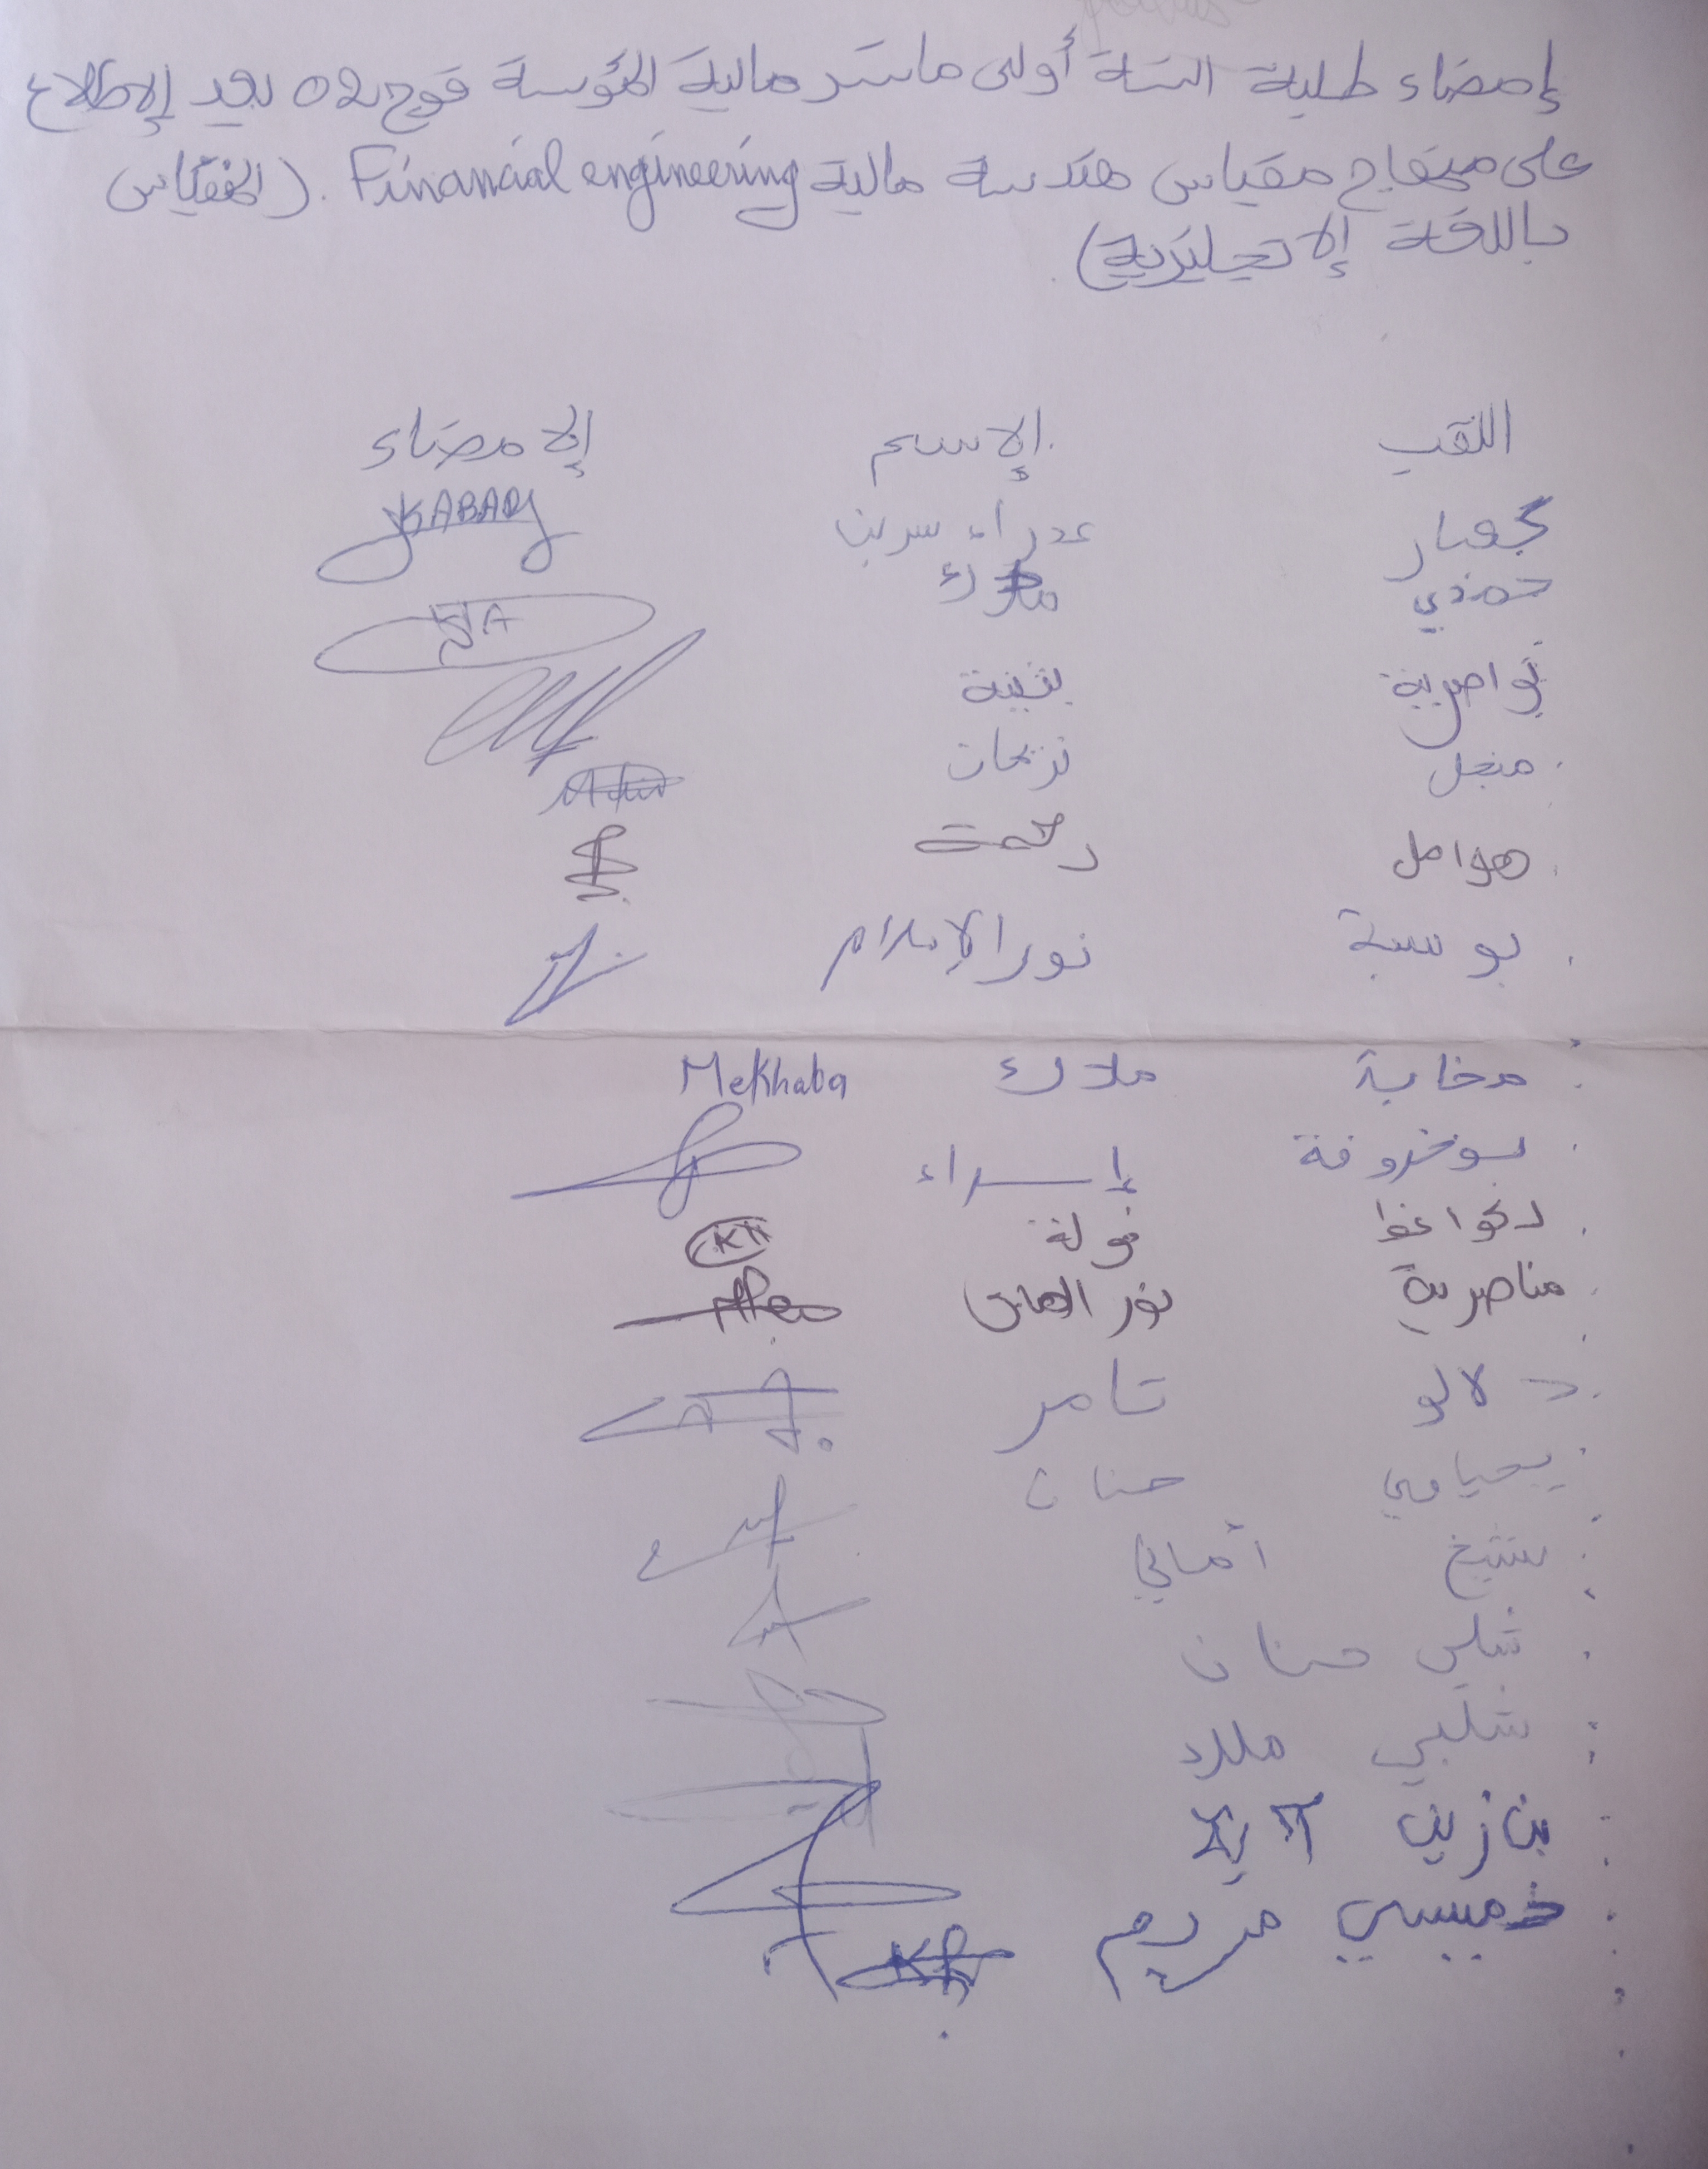 إمضاء طلبة السنة أولى ماستر مالية المؤسسة فوج 02 بعد الإطلاع
على منهاج مقياس هندسة مالية Financial engineering. (المقياس
باللغة الإنجليزية).
اللقب الإسم الإمضاء
عذراء سرين KABARY
حمدي ملاك
نواصرية بثينة
منجل نزيهات
هوامل رحمة
بوسبة نور الإسلام
مخابة ملاك Mekhaba
بوخروفة إسراء
خولة KH
مناصرية نور الهدى
دلالو تامر
يحياوي حنان
شيخ أماني
شلبي حنان
شلبي ميلاد
بن زين آية
خميسي مريم